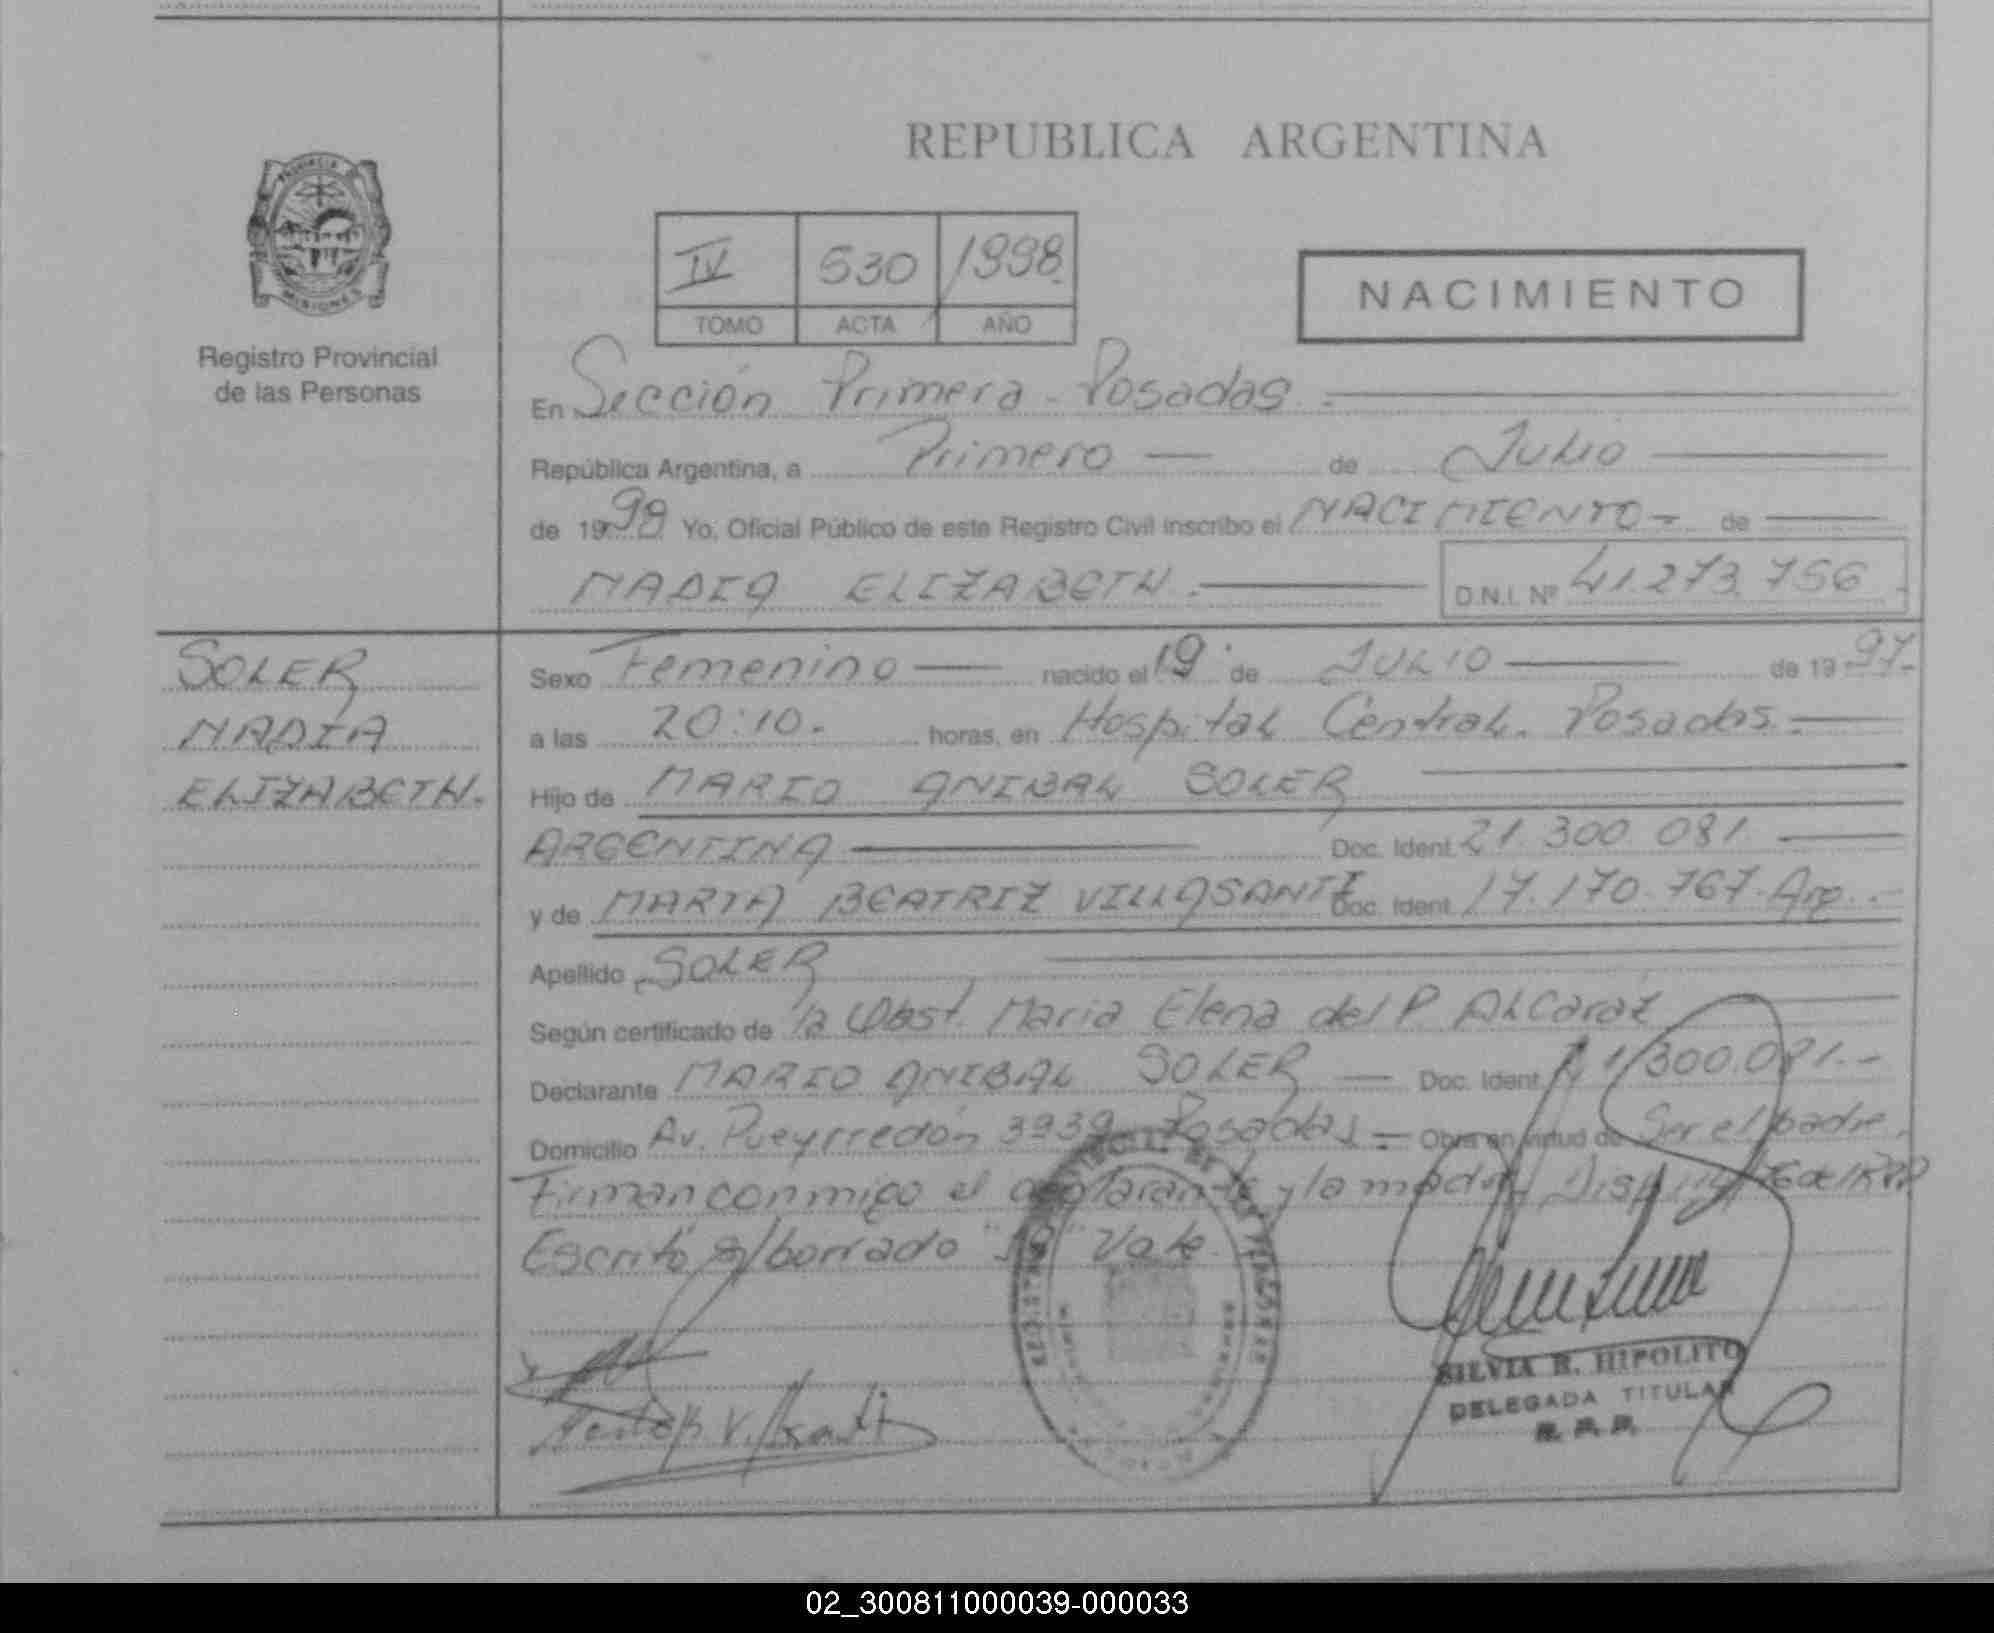 REPUBLICA ARGENTINA
PROVINCIA
MISIONES
Registro Provincial
de las Personas
IV 530 1998
TOMO ACTA AÑO
NACIMIENTO
En Sección Primera - Posadas. -
República Argentina, a Primero — de Julio —
de 1998 Yo, Oficial Público de este Registro Civil inscribo el NACIMIENTO - de —
NADIA ELIZABETH. — D.N.I. Nº 41.273.756 -
SOLER
NADIA
ELIZABETH.
Sexo Femenino — nacido el 19 de JULIO — de 1997.-
a las 20:10.- horas, en Hospital Central. Posadas. -
Hijo de MARIO ANIBAL SOLER —
ARGENTINA — Doc. Ident. 21.300.081. —
y de MARTA BEATRIZ VILLASANTI Doc. Ident. 17.170.767. Arg. -
Apellido SOLER —
Según certificado de la Obst. Maria Elena del P. ALCaraz
Declarante MARIO ANIBAL SOLER — Doc. Ident. 21.300.081.-
Domicilio Av. Pueyrredón 3939 Posadas - Obra en virtud de Ser el padre.
Firman conmigo el declarante y la madre
Escrito s/borrado "19" Vale.
SILVIA R. HIPOLITO
DELEGADA TITULAR
R. P. P.
02_300811000039-000033